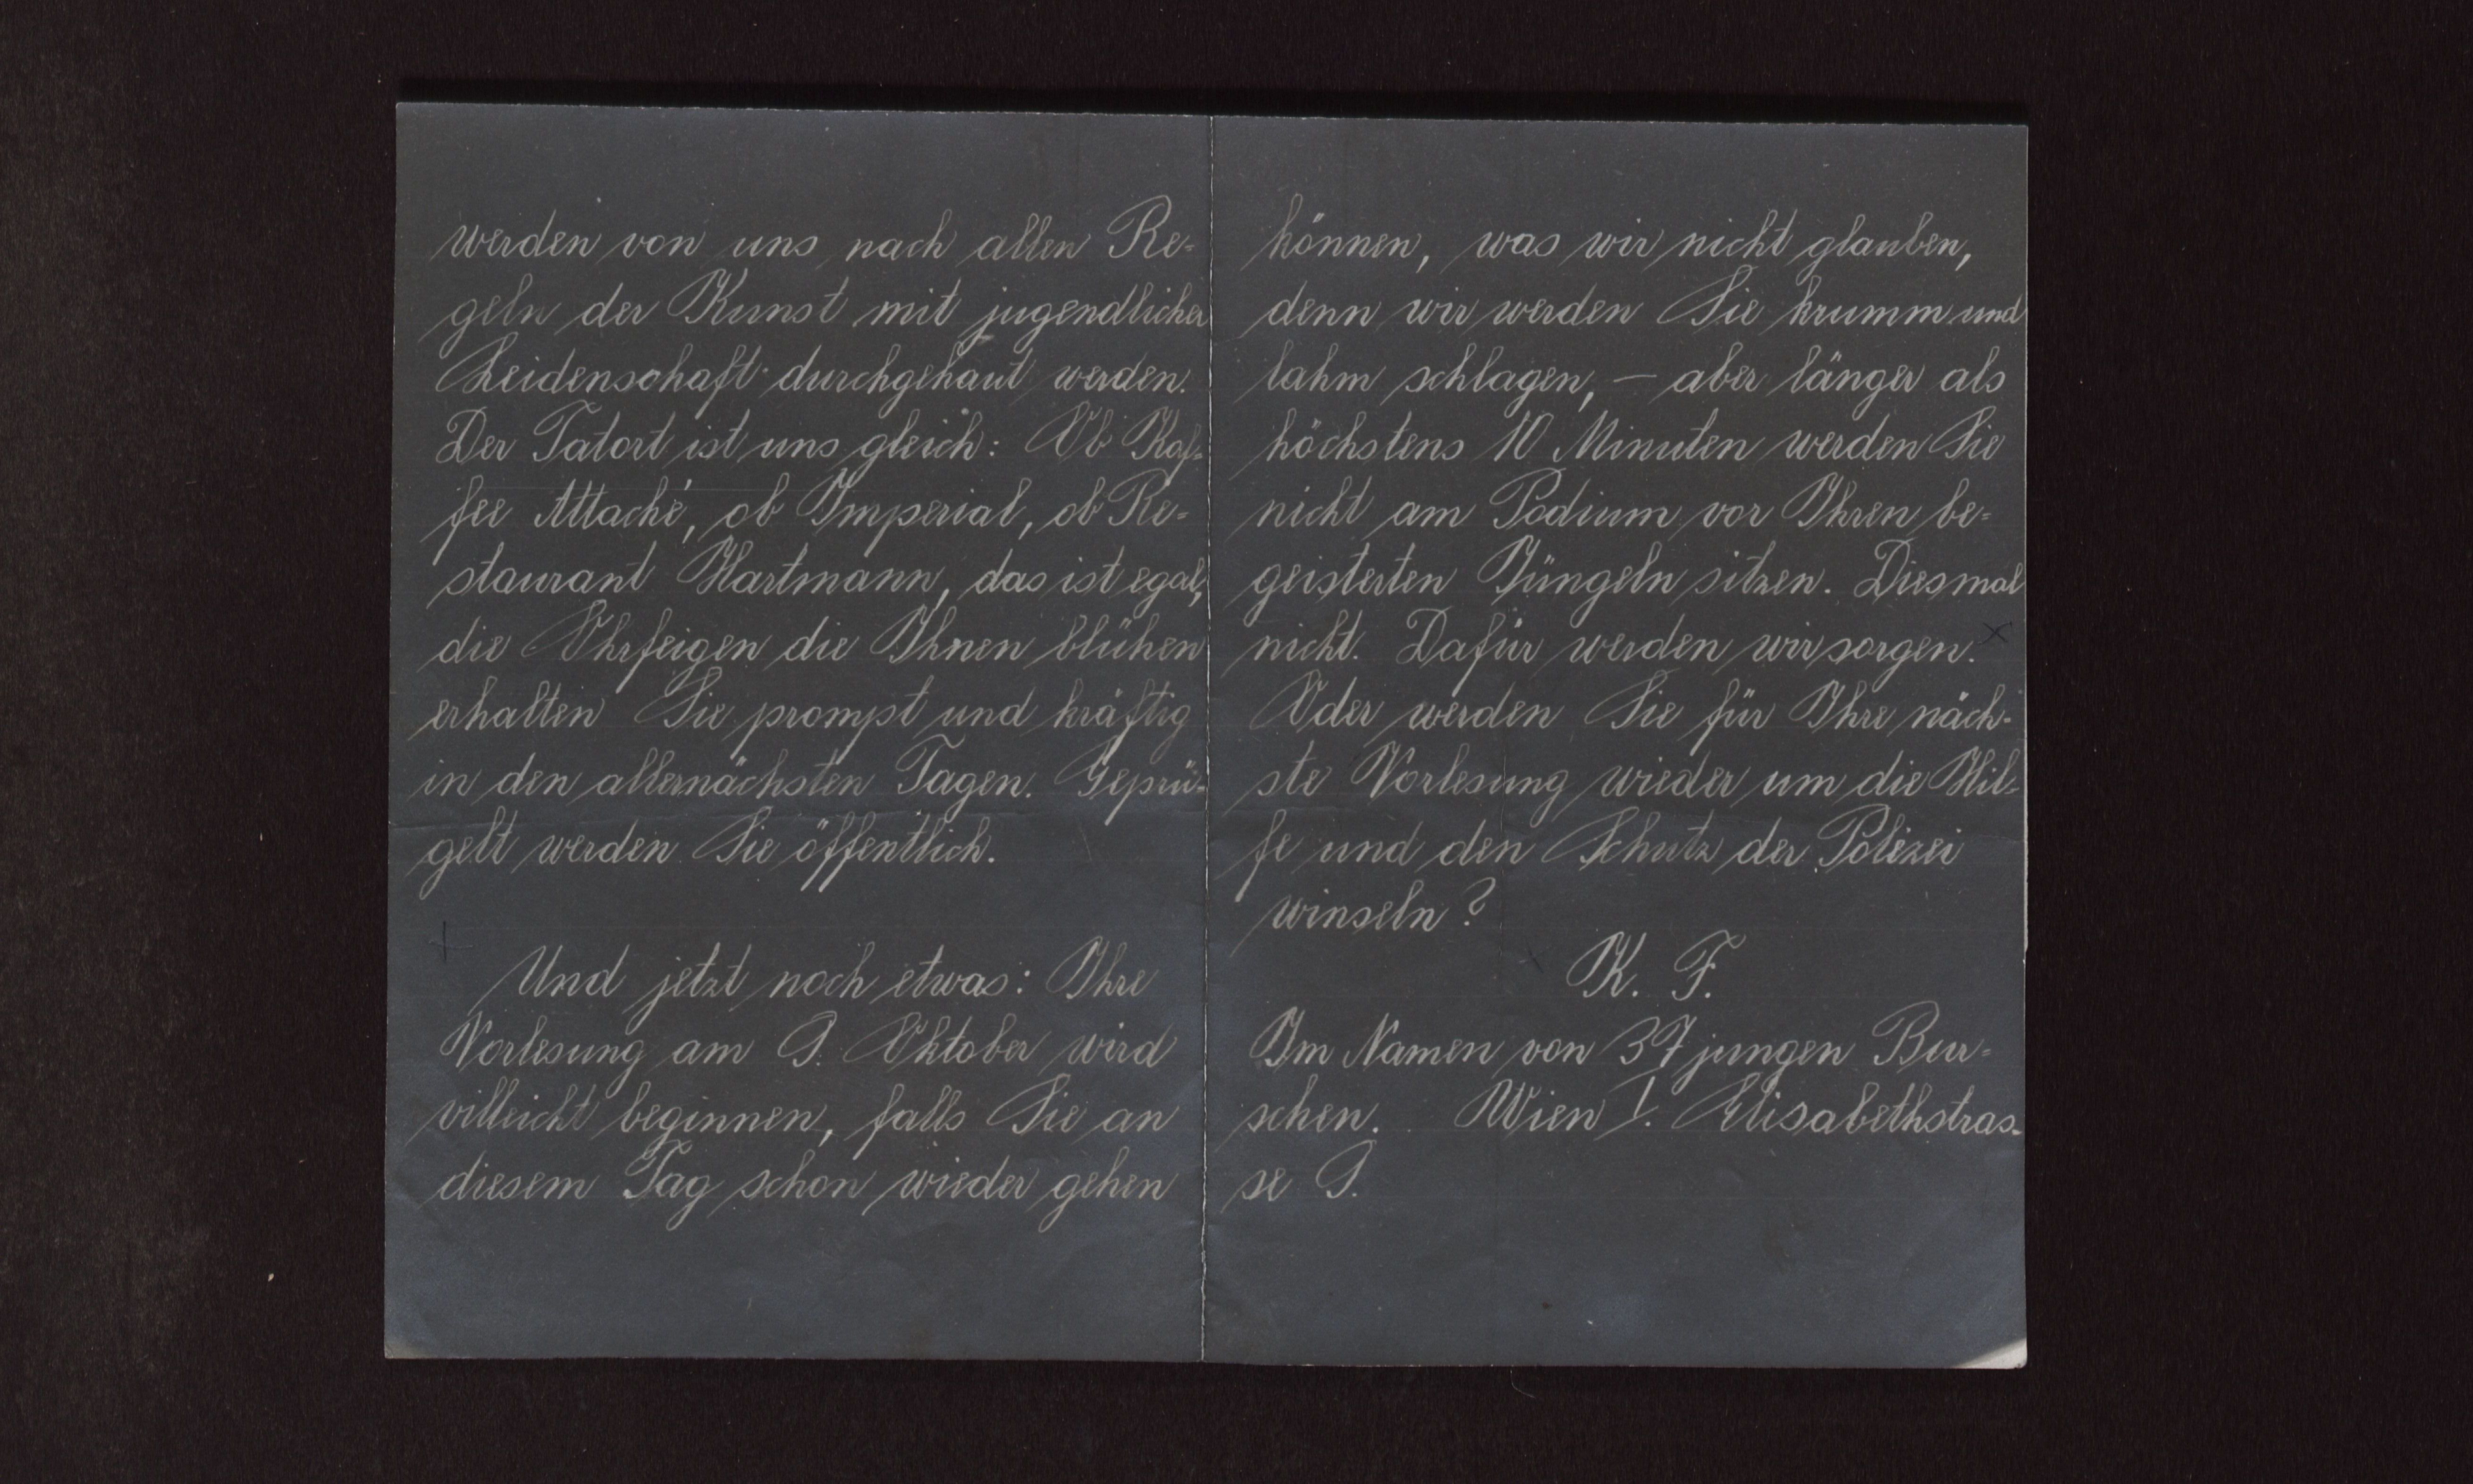 werden von uns nach allen Re-
geln der Kunst mit jugendlicher
Leidenschaft durchgehaut werden.
Der Tatort ist uns gleich: Ob Kaf-
fee Attaché, ob Imperial, ob Re-
staurant Hartmann, das ist egal,
die Ohrfeigen die Ihnen blühen
erhalten Sie prompt und kräftig
in den allernächsten Tagen. Geprü-
gelt werden Sie öffentlich.
Und jetzt noch etwas: Ihre
Vorlesung am 9. Oktober wird
villeicht beginnen, falls Sie an
diesem Tag schon wieder gehen
können, was wir nicht glauben,
denn wir werden Sie krumm und
lahm schlagen, – aber länger als
höchstens 10 Minuten werden Sie
nicht am Podium vor Ihren be-
geisterten Jüngeln sitzen. Diesmal
nicht. Dafür werden wir sorgen.
Oder werden Sie für Ihre näch-
ste Vorlesung wieder um die Hil-
fe und den Schutz der Polizei
winseln?
K. F.
Im Namen von 37 jungen Bur-
schen. Wien I. Elisabethstras-
se 9.